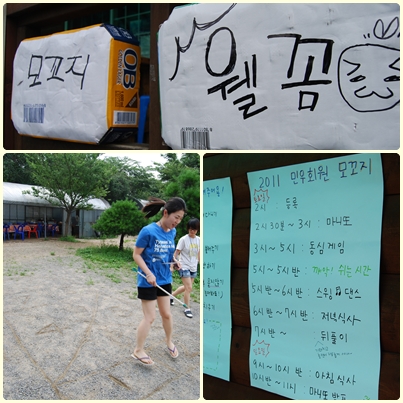 모꼬지
OB
웰꼼
2011 민우회원 모꼬지
2시 등록
2시 30분 ~ 3시 : 마니또
3시 ~ 5시 : 동심 게임
5시 ~ 5시 반 : 까아! 쉬는 시간
5시 반 ~ 6시 반 : 스윙 댄스
6시 반 ~ 7시 반 : 저녁식사
7시 반 ~ 뒤풀이
9시 ~ 10시 반 : 아침식사
10시 반 ~ 11시 : 마니또 발표